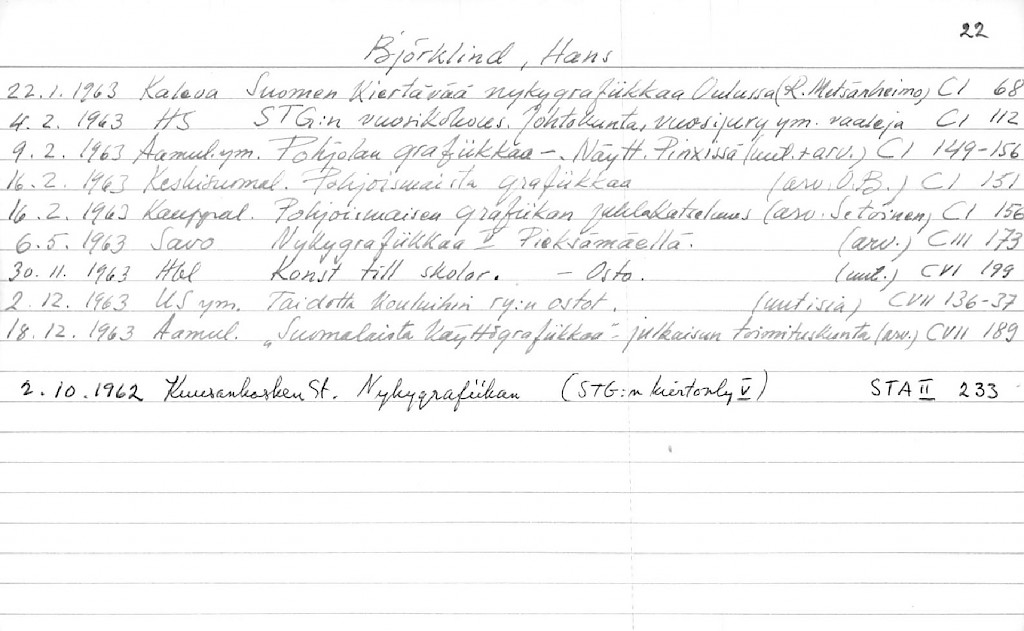 22
Björklind, Hans
22.1.1963 Kaleva Suomen Kiertävää nykygrafiikkaa Oulussa (R. Metsänheimo) CI 68
4.2.1963 HS STG:n vuosikokous. Johtokunta, vuosijury ym. vaaleja CI 112
9.2.1963 Aamul. ym. Pohjolan grafiikkaa -. Näytt. Pinxissä (uut. + arv.) CI 149-156
16.2.1963 Keskisuomal. Pohjoismaista grafiikkaa (arv. O.B.) CI 151
16.2.1963 Kauppal. Pohjoismaisen grafiikan juhlakatselmus (arv. Setoinen) CI 156
6.5.1963 Savo Nykygrafiikkaa V Pieksämäellä. (arv.) CIII 173
30.11.1963 Hbl Konst till skolor. - Osto. (uut.) CVI 199
2.12.1963 US ym. Taidetta Kouluihin ry:n ostot. (uutisia) CVII 136-37
18.12.1963 Aamul. "Suomalaista Käyttögrafiikkaa" - julkaisun toimituskunta (arv.) CVII 189
2.10.1962 Kuusankosken St. Nykygrafiikan (STG:n kiertonäy V) STA II 233